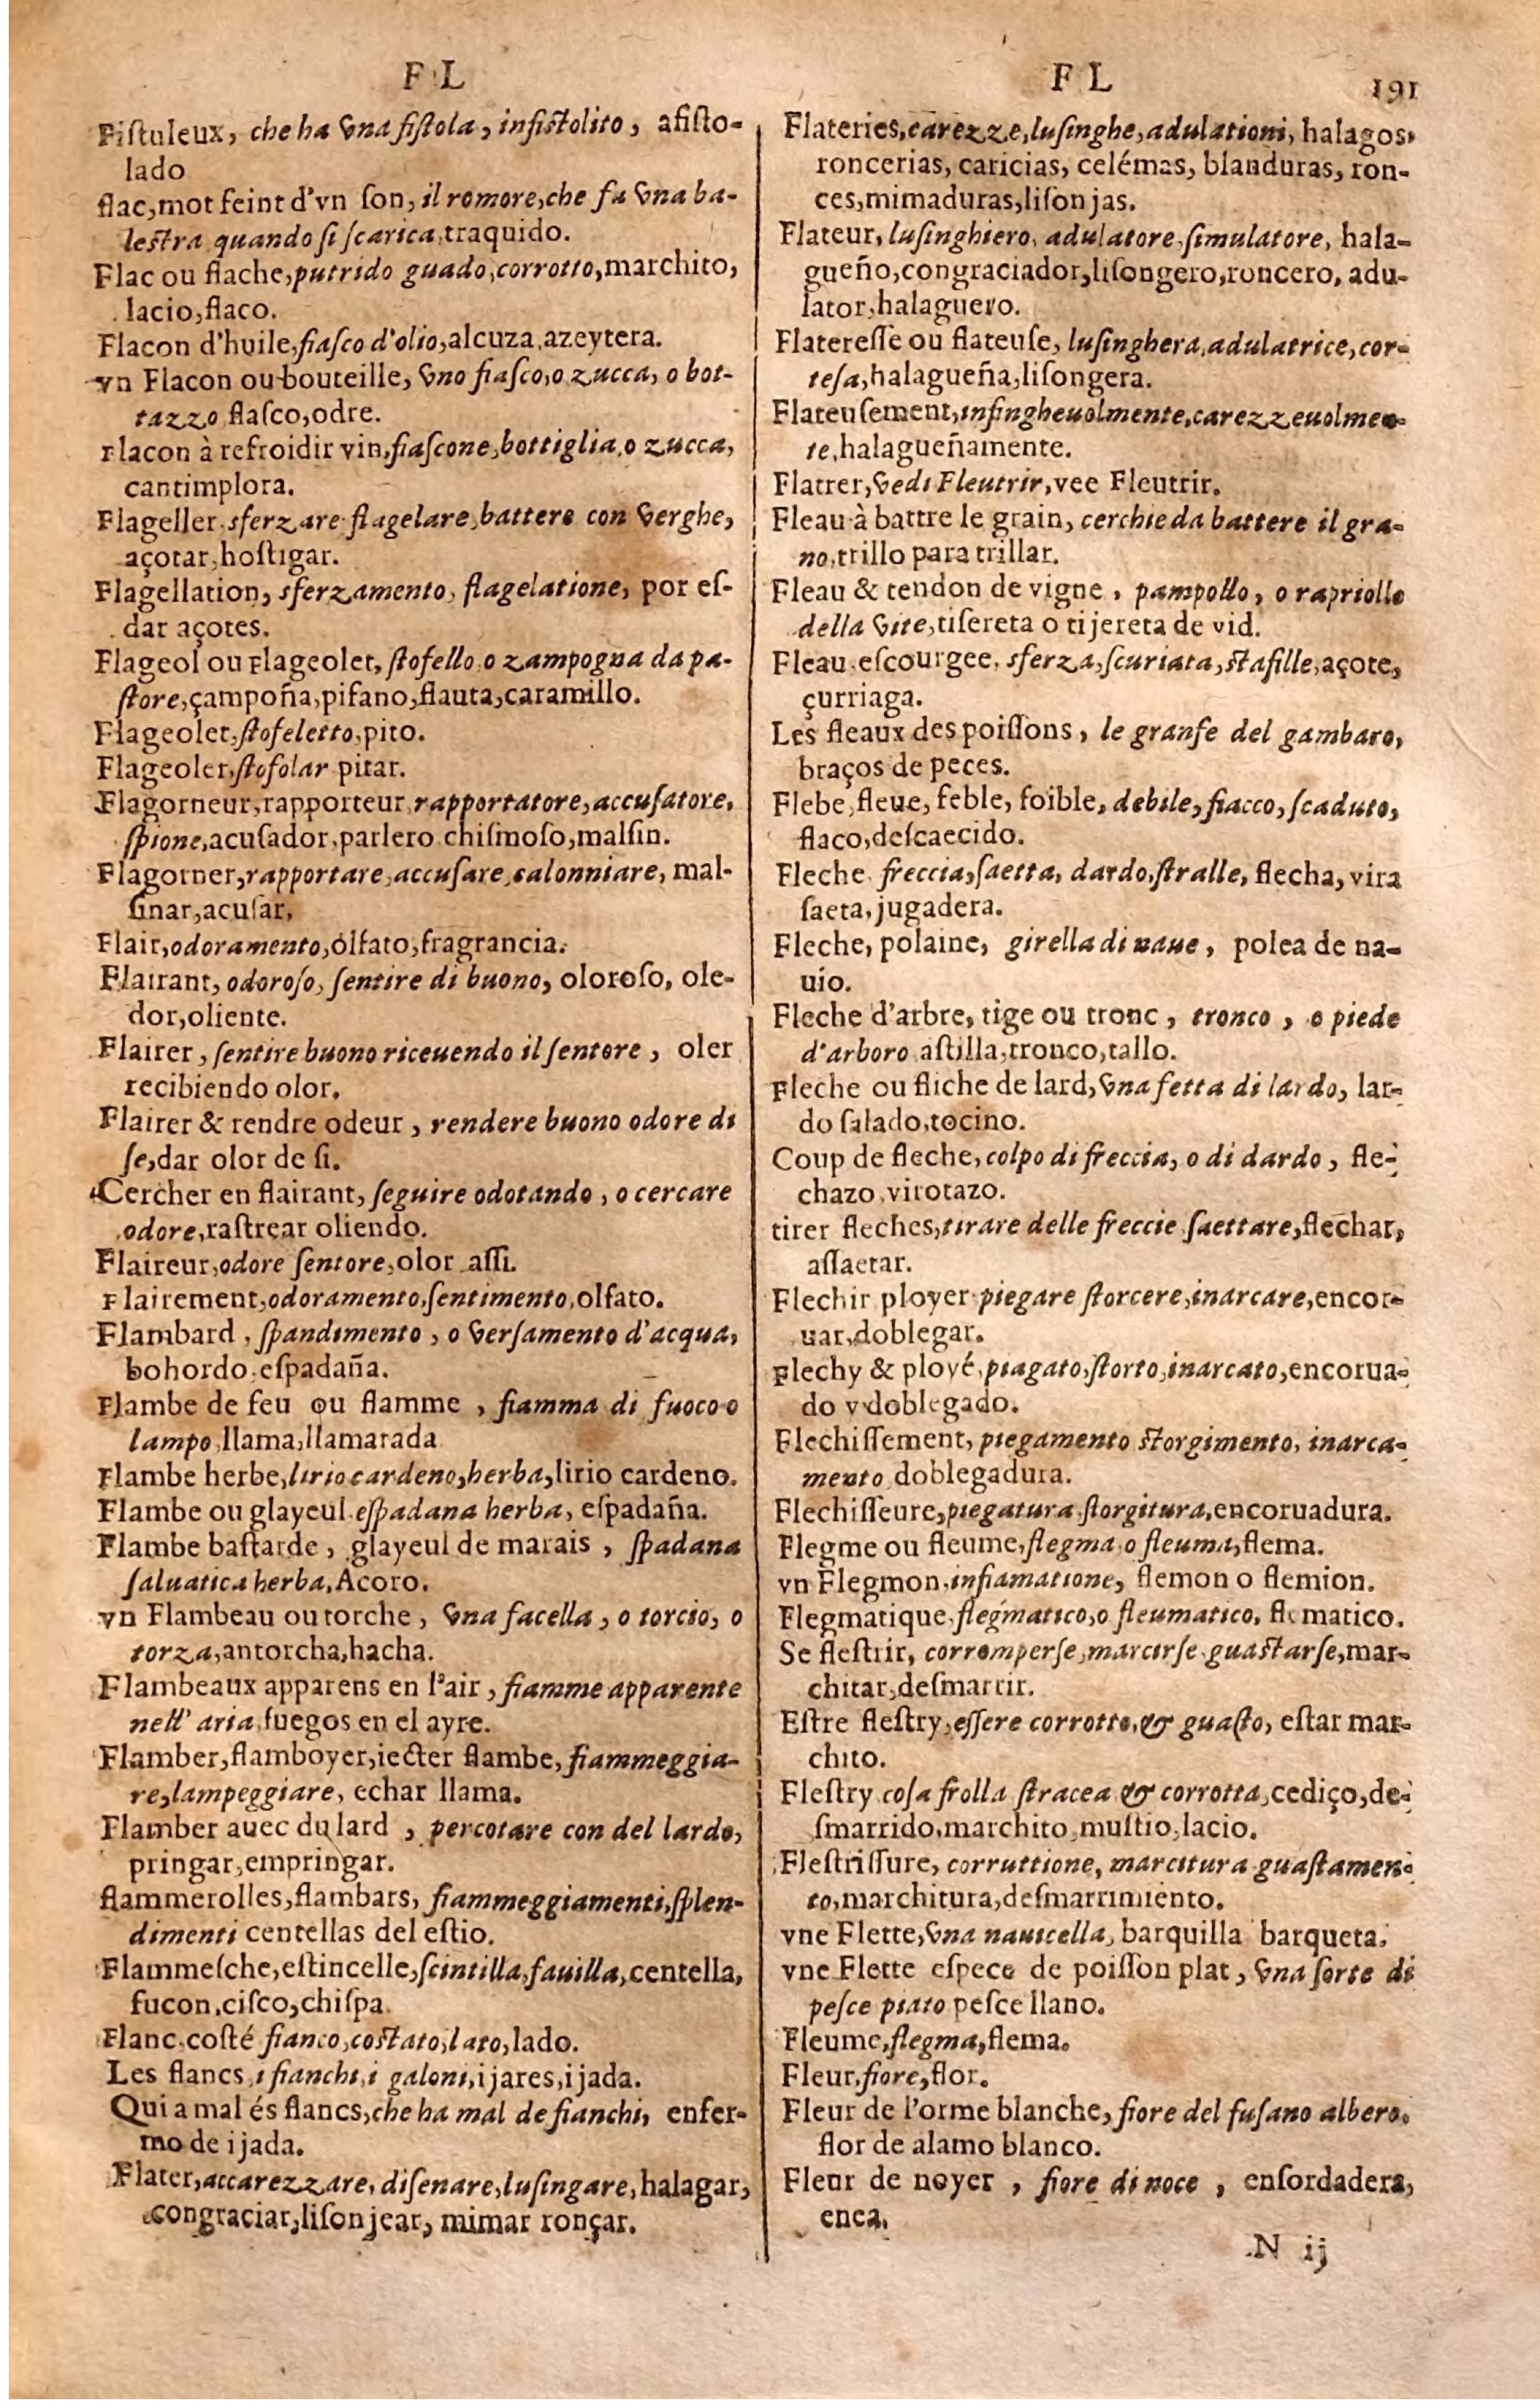 F L
Fiſtuleux, che ha vna fiſtola, infiſtolito, afiſto-
lado
flac, mot feint d'vn ſon, il romore, che fa vna ba-
leſtra quando ſi ſcarica, traquido.
Flac ou flache, putrido guado, corrotto, marchito,
lacio, flaco.
Flacon d'huile, fiaſco d'olio, alcuza, azeytera.
vn Flacon ou bouteille, vno fiaſco, o zucca, o bot-
tazzo flaſco, odre.
Flacon à refroidir vin, fiaſcone, bottiglia, o zucca,
cantimplora.
Flageller, sferzare flagelare, battere con verghe,
açotar, hoſtigar.
Flagellation, sferzamento, flagelatione, por eſ-
dar açotes.
Flageol ou Flageolet, ſtofello o zampogna da pa-
ſtore, çampoña, pifano, flauta, caramillo.
Flageolet, ſtofeletto, pito.
Flageoler, ſtofolar pitar.
Flagorneur, rapporteur, rapportatore, accuſatore,
ſpione, acuſador, parlero chiſmoſo, malſin.
Flagorner, rapportare, accuſare, calonniare, mal-
ſinar, acuſar,
Flair, odoramento, olfato, fragrancia.
Flairant, odoroſo, ſentire di buono, oloroſo, ole-
dor, oliente.
Flairer, ſentire buono riceuendo il ſentore, oler
recibiendo olor.
Flairer & rendre odeur, rendere buono odore di
ſe, dar olor de ſi.
Cercher en flairant, ſeguire odotando, o cercare
odore, raſtrear oliendo.
Flaireur, odore ſentore, olor aſſi.
Flairement, odoramento, ſentimento, olfato.
Flambard, ſpandimento, o verſamento d'acqua,
bohordo, eſpadaña.
Flambe de feu ou flamme, fiamma di fuoco o
lampo, llama, llamarada
Flambe herbe, lirio cardeno, herba, lirio cardeno.
Flambe ou glayeul, eſpadana herba, eſpadaña.
Flambe baſtarde, glayeul de marais, ſpadana
ſaluatica herba, Acoro.
vn Flambeau ou torche, vna facella, o torcio, o
torza, antorcha, hacha.
Flambeaux apparens en l'air, fiamme apparente
nell' aria, fuegos en el ayre.
Flamber, flamboyer, iecter flambe, fiammeggia-
re, lampeggiare, echar llama.
Flamber auec du lard, percotare con del lardo,
pringar, empringar.
flammerolles, flambars, fiammeggiamenti, ſplen-
dimenti centellas del eſtio.
Flammeſche, eſtincelle, ſcintilla, fauilla, centella,
fucon, ciſco, chiſpa.
Flanc, coſté fianco, coſtato, lato, lado.
Les flancs, i fianchi, i galoni, ijares, ijada.
Qui a mal és flancs, che ha mal de fianchi, enfer-
mo de ijada.
Flater, accarezzare, diſenare, luſingare, halagar,
congraciar, liſonjear, mimar ronçar.
F L 191
Flateries, carezze, luſinghe, adulationi, halagos,
roncerias, caricias, celémas, blanduras, ron-
ces, mimaduras, liſonjas.
Flateur, luſinghiero, adulatore, ſimulatore, hala-
gueño, congraciador, liſongero, roncero, adu-
lator, halaguero.
Flatereſſe ou flateuſe, luſinghera, adulatrice, cor-
teſa, halagueña, liſongera.
Flateuſement, inſingheuolmente, carezzeuolmen-
te, halagueñamente.
Flatrer, vedi Fleutrir, vee Fleutrir.
Fleau à battre le grain, cerchie da battere il gra-
no, trillo para trillar.
Fleau & tendon de vigne, pampollo, o rapriollo
della vite, tiſereta o tijereta de vid.
Fleau eſcourgee, sferza, ſcuriata, ſtafille, açote,
çurriaga.
Les fleaux des poiſſons, le granfe del gambaro,
braços de peces.
Flebe, fleue, feble, foible, debile, fiacco, ſcaduto,
flaco, deſcaecido.
Fleche freccia, ſaetta, dardo, ſtralle, flecha, vira
ſaeta, jugadera.
Fleche, polaine, girella di naue, polea de na-
uio.
Fleche d'arbre, tige ou tronc, tronco, o piede
d'arboro, aſtilla, tronco, tallo.
Fleche ou fliche de lard, vna fetta di lardo, lar-
do ſalado, tocino.
Coup de fleche, colpo di freccia, o di dardo, fle-
chazo, virotazo.
tirer fleches, tirare delle freccie ſaettare, flechar,
aſſaetar.
Flechir ployer piegare ſtorcere, inarcare, encor-
uar, doblegar.
Flechy & ployé, piagato, ſtorto, inarcato, encorua-
do y doblegado.
Flechiſſement, piegamento ſtorgimento, inarca-
mento, doblegadura.
Flechiſſeure, piegatura ſtorgitura, encoruadura.
Flegme ou fleume, flegma o fleuma, flema.
vn Flegmon, infiamatione, flemon o flemion.
Flegmatique, flegmatico, o fleumatico, flematico.
Se fleſtrir, corromperſe, marcirſe guaſtarſe, mar-
chitar, deſmarrir.
Eſtre fleſtry, eſſere corrotto, & guaſto, eſtar mar-
chito.
Fleſtry coſa frolla ſtracea & corrotta, cediço, de-
ſmarrido, marchito, muſtio, lacio.
Fleſtriſſure, corruttione, marcitura guaſtamen-
to, marchitura, deſmarrimiento.
vne Flette, vna nauicella, barquilla barqueta.
vne Flette eſpece de poiſſon plat, vna ſorte di
peſce piato peſce llano.
Fleume, flegma, flema.
Fleur, fiore, flor.
Fleur de l'orme blanche, fiore del fuſano albero.
flor de alamo blanco.
Fleur de noyer, fiore di noce, enſordadera,
enea.
N ij